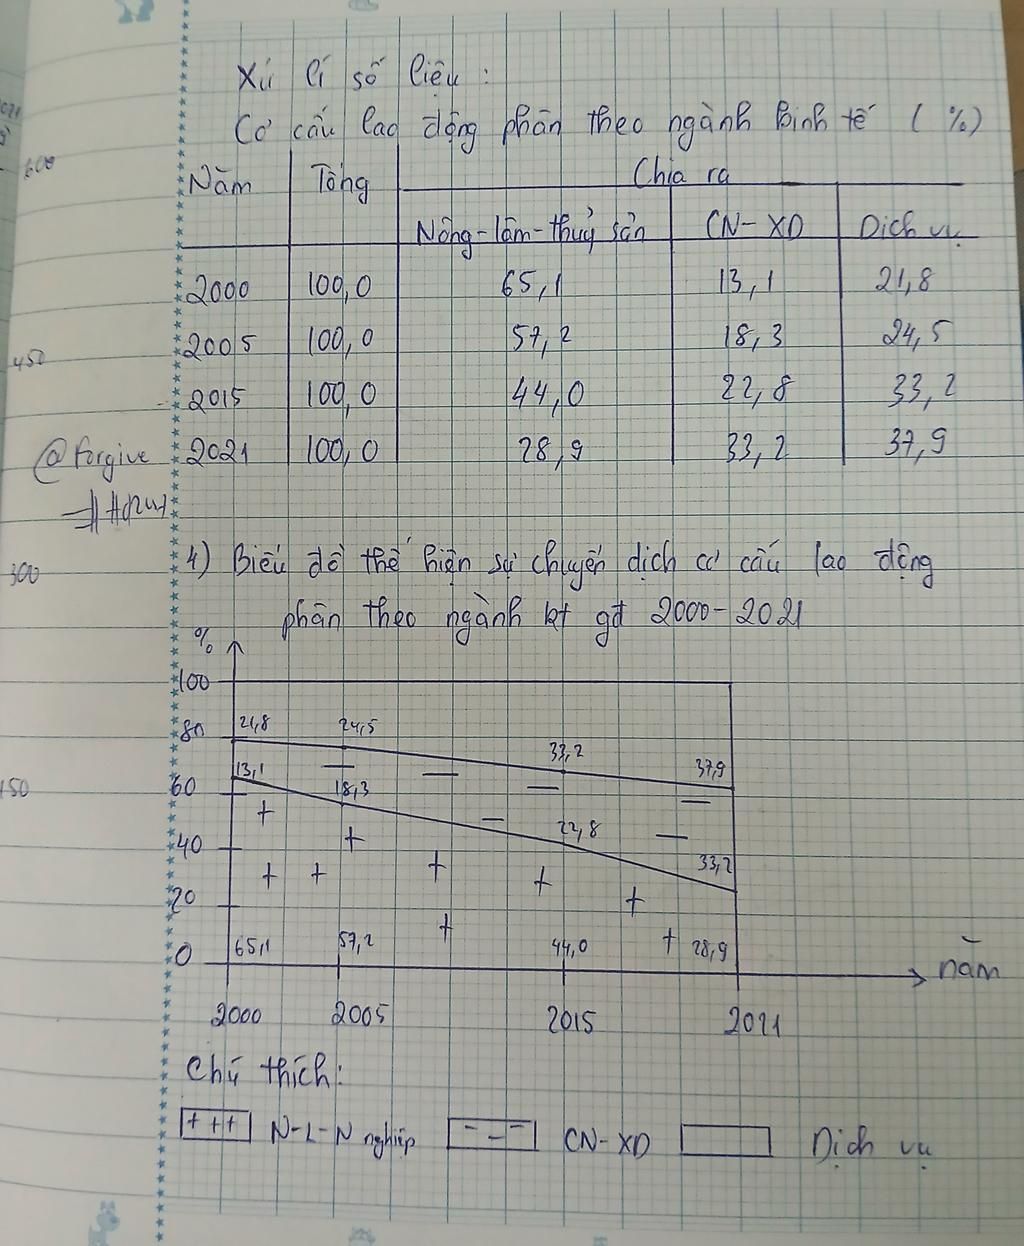 Xử lí số liệu :
Cơ cấu lao động phân theo ngành kinh tế ( %)
Năm Tổng Chia ra
Nông-lâm-thuỷ sản CN-XD Dịch vụ
2000 100,0 65,1 13,1 21,8
2005 100,0 57,2 18,3 24,5
2015 100,0 44,0 22,8 33,2
@forgive 2021 100,0 28,9 33,2 37,9
4) Biểu đồ thể hiện sự chuyển dịch cơ cấu lao động
phân theo ngành kt gđ 2000-2021
%
100
80 21,8 24,5 33,2 37,9
60 13,1 18,3 22,8 33,2
40
20
0 65,1 57,2 44,0 28,9 năm
2000 2005 2015 2021
Chú thích:
+ + + N-L-N nghiệp - - - CN-XD Dịch vụ
600
450
300
150